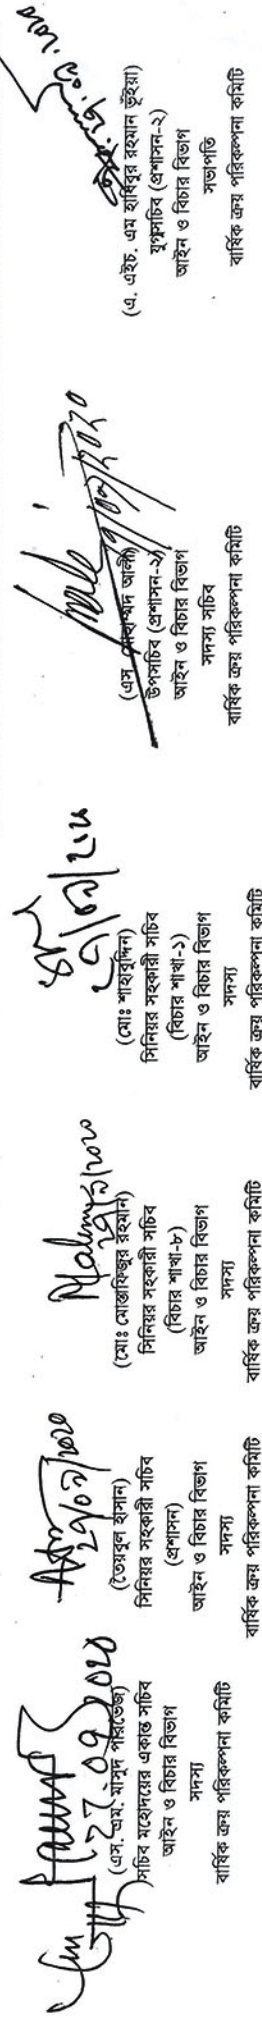 ২৭.০৯.২০২০
(এস. এম. মাসুদ পারভেজ)
সচিব মহোদয়ের একান্ত সচিব
আইন ও বিচার বিভাগ
সদস্য
বার্ষিক ক্রয় পরিকল্পনা কমিটি
২৭/০৯/২০২০
(তৈয়বুল হাসান)
সিনিয়র সহকারী সচিব
(প্রশাসন)
আইন ও বিচার বিভাগ
সদস্য
বার্ষিক ক্রয় পরিকল্পনা কমিটি
(মোঃ মোস্তাফিজুর রহমান)
সিনিয়র সহকারী সচিব
(বিচার শাখা-৮)
আইন ও বিচার বিভাগ
সদস্য
বার্ষিক ক্রয় পরিকল্পনা কমিটি
(মোঃ শাহাবুদ্দিন)
সিনিয়র সহকারী সচিব
(বিচার শাখা-১)
আইন ও বিচার বিভাগ
সদস্য
বার্ষিক ক্রয় পরিকল্পনা কমিটি
(এস মোহাম্মদ আলী)
উপসচিব (প্রশাসন-২)
আইন ও বিচার বিভাগ
সদস্য সচিব
বার্ষিক ক্রয় পরিকল্পনা কমিটি
(এ. এইচ. এম হাবিবুর রহমান ভূঁইয়া)
যুগ্মসচিব (প্রশাসন-২)
আইন ও বিচার বিভাগ
সভাপতি
বার্ষিক ক্রয় পরিকল্পনা কমিটি